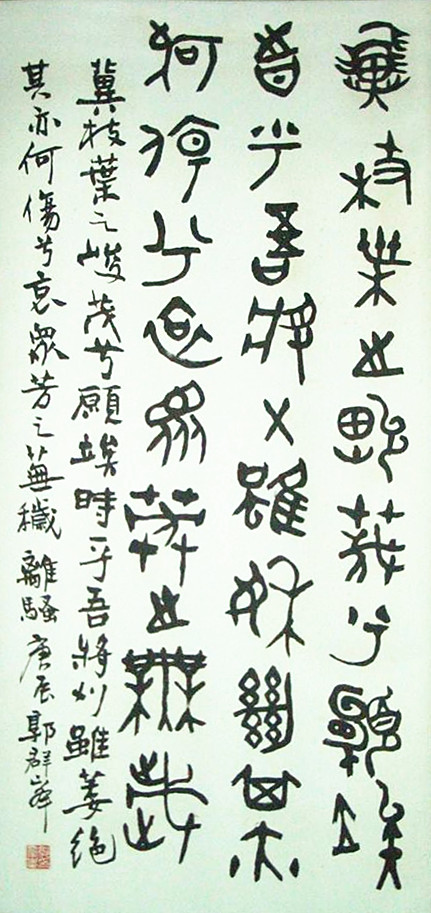 冀枝葉之峻茂兮願竢
時乎吾將刈雖萎絕其亦
何傷兮哀眾芳之蕪穢
冀枝葉之峻茂兮願竢時乎吾將刈雖萎絕
其亦何傷兮哀眾芳之蕪穢 離騷 庚辰郭群峰